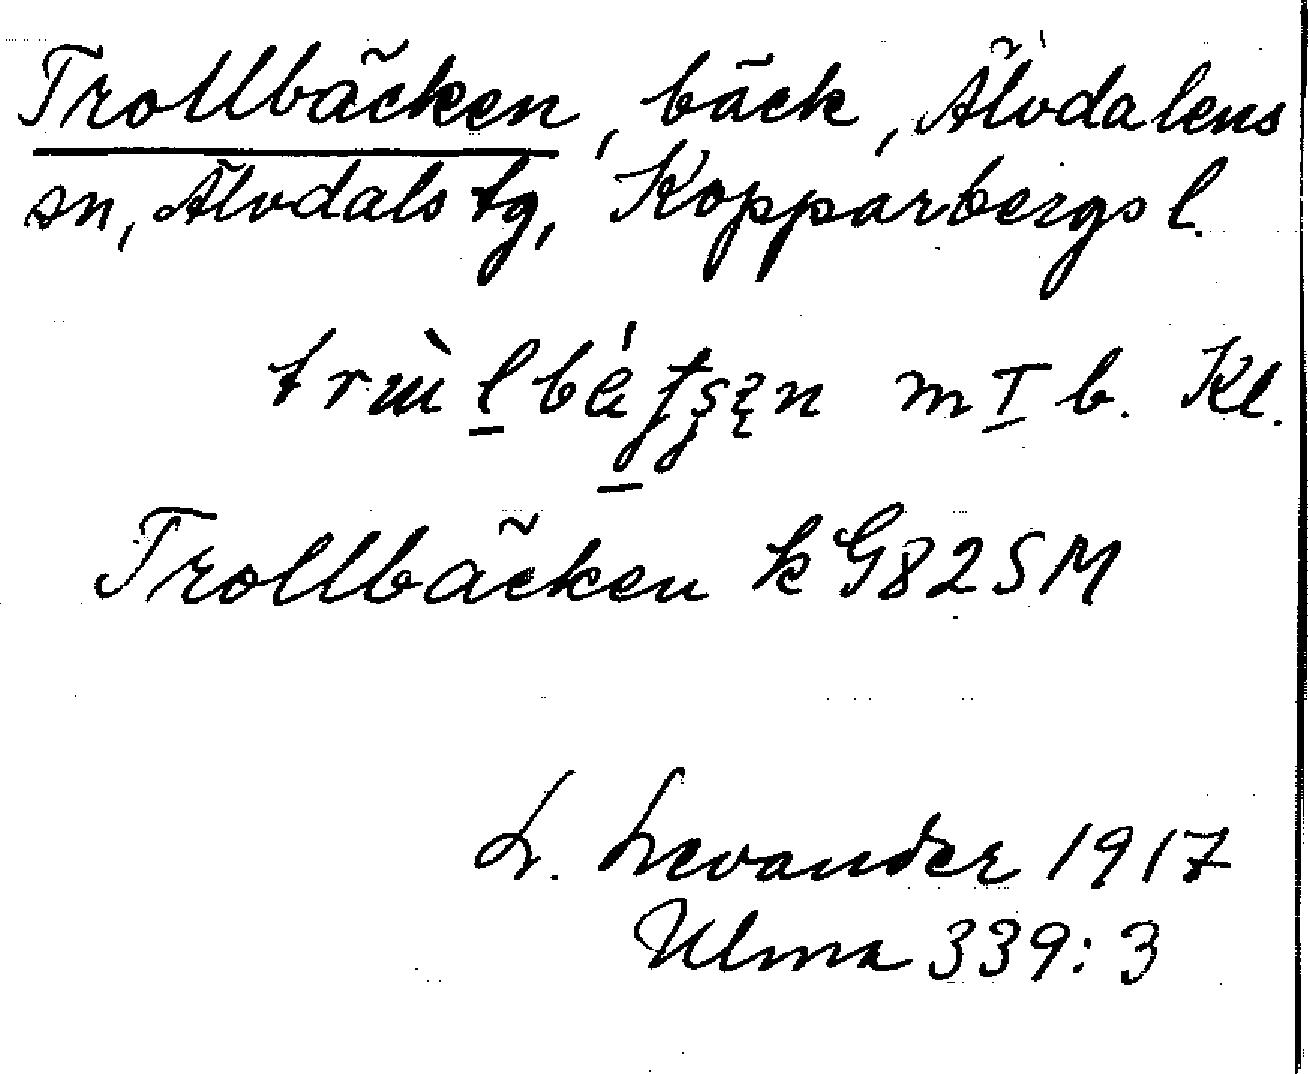 Trollbäcken, bäck, Älvdalens
sn, Älvdals tg, Kopparbergs l.
m I b. Kl.
Trollbäcken k G82SM
L. Levander 1917
Ulma 339:3